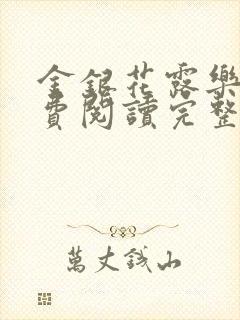 金銀花露樂
費閱讀完整
萬丈錢山